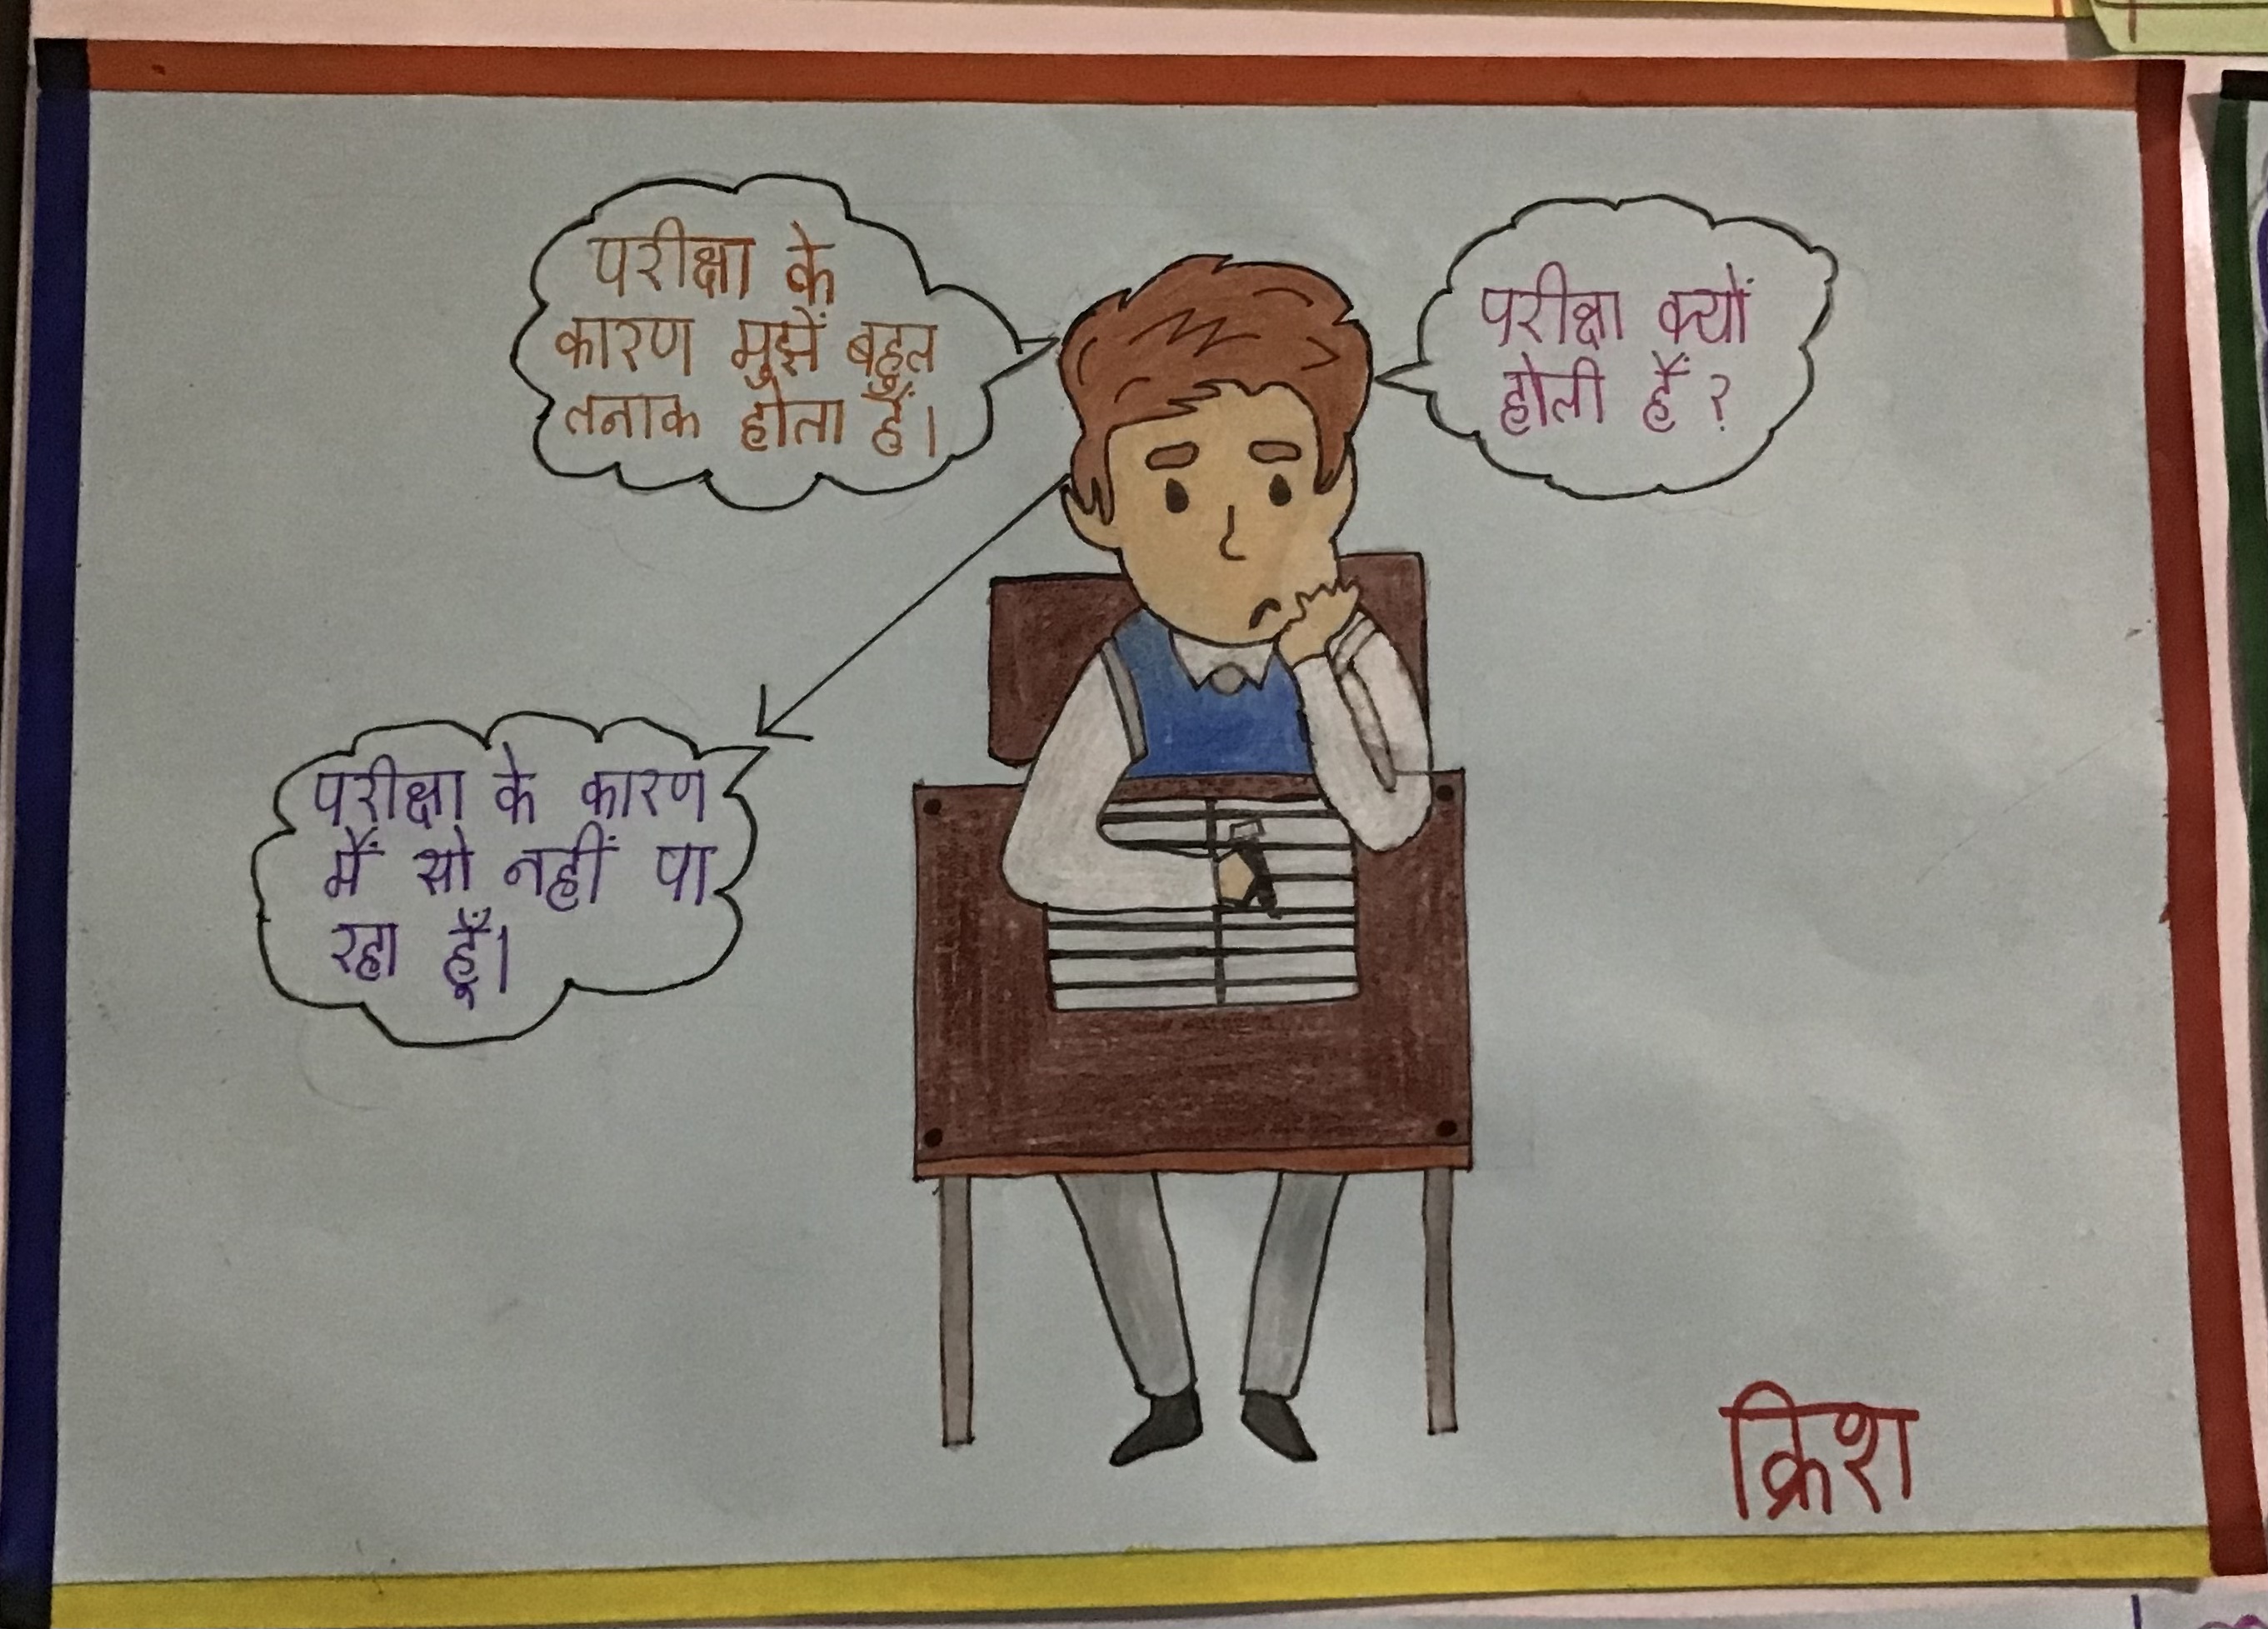 परीक्षा के
कारण मुझें बहुत
तनाक होता हैं।
परीक्षा क्यों
होती हैं ?
परीक्षा के कारण
मैं सो नहीं पा
रहा हूँ।
क्रिश